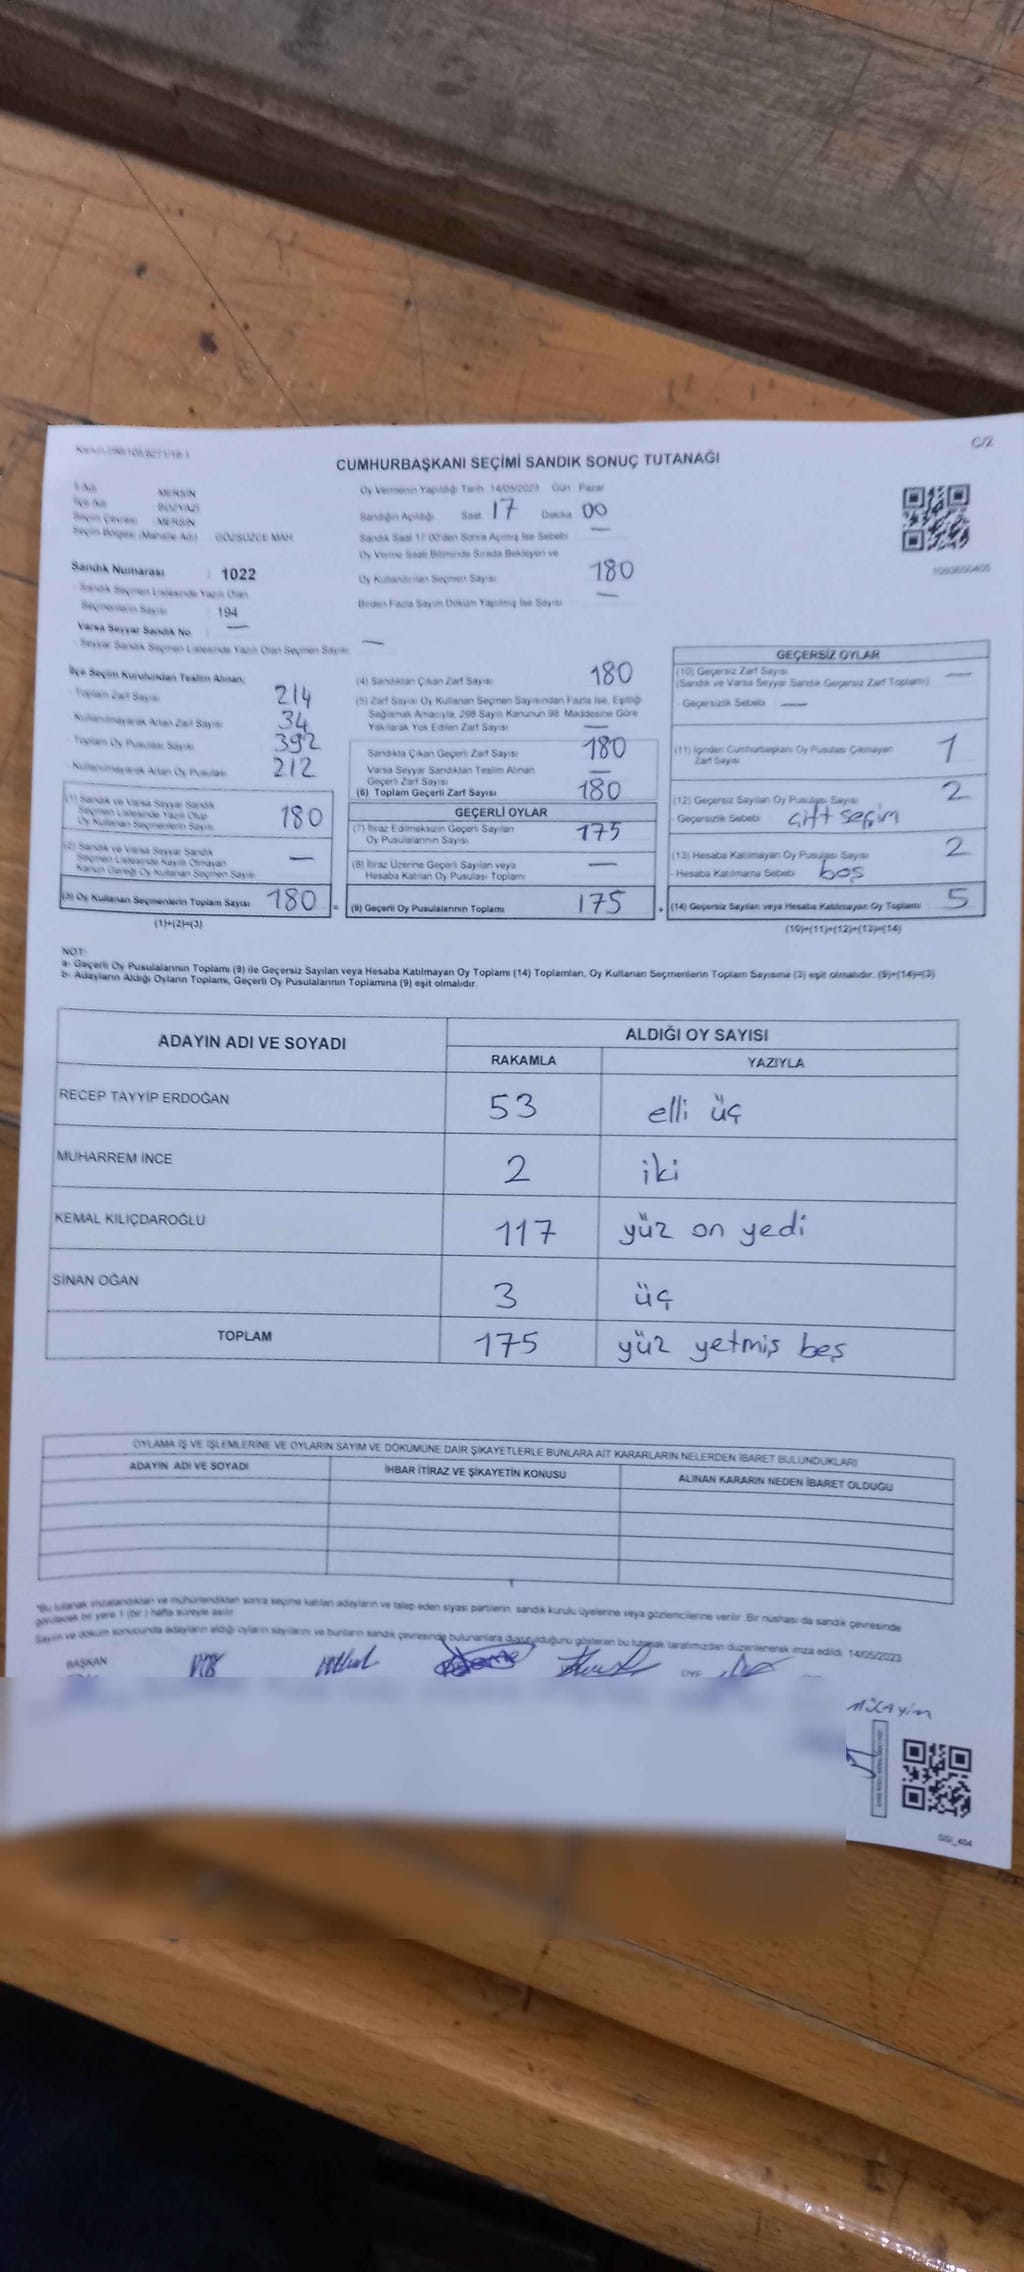 C/2
CUMHURBAŞKANI SEÇİMİ SANDIK SONUÇ TUTANAĞI
İl Adı : MERSİN
İlçe Adı : BOZYAZI
Seçim Çevresi : MERSİN
Seçim Bölgesi (Mahalle Adı) : GÖZSÜZCE MAH
Oy Vermenin Yapıldığı Tarih: 14/05/2023 Gün: Pazar
Sandığın Açıldığı Saat 17 Dakika 00
Sandık Saat 17:00'den Sonra Açılmış İse Sebebi —
Oy Verme Saati Bitiminde Sırada Bekleyen ve
Oy Kullandırılan Seçmen Sayısı 180
Birden Fazla Sayım Döküm Yapılmış İse Sayısı —
Sandık Numarası : 1022
Sandık Seçmen Listesinde Yazılı Olan
Seçmenlerin Sayısı : 194
Varsa Seyyar Sandık No —
Seyyar Sandık Seçmen Listesinde Yazılı Olan Seçmen Sayısı —
İlçe Seçim Kurulundan Teslim Alınan;
- Toplam Zarf Sayısı 214
- Kullanılmayarak Artan Zarf Sayısı 34
- Toplam Oy Pusulası Sayısı 392
- Kullanılmayarak Artan Oy Pusulası 212
(1) Sandık ve Varsa Seyyar Sandık
Seçmen Listesinde Yazılı Olup
Oy Kullanan Seçmenlerin Sayısı 180
(2) Sandık ve Varsa Seyyar Sandık
Seçmen Listesinde Kayıtlı Olmayan
Kanun Gereği Oy Kullanan Seçmen Sayısı —
(3) Oy Kullanan Seçmenlerin Toplam Sayısı 180 =
(1)+(2)=(3)
(4) Sandıktan Çıkan Zarf Sayısı 180
(5) Zarf Sayısı Oy Kullanan Seçmen Sayısından Fazla İse, Eşitliği
Sağlamak Amacıyla, 298 Sayılı Kanunun 98. Maddesine Göre
Yakılarak Yok Edilen Zarf Sayısı —
Sandıkta Çıkan Geçerli Zarf Sayısı 180
Varsa Seyyar Sandıktan Teslim Alınan
Geçerli Zarf Sayısı —
(6) Toplam Geçerli Zarf Sayısı 180
GEÇERLİ OYLAR
(7) İtiraz Edilmeksizin Geçerli Sayılan
Oy Pusulalarının Sayısı 175
(8) İtiraz Üzerine Geçerli Sayılan veya
Hesaba Katılan Oy Pusulası Toplamı —
(9) Geçerli Oy Pusulalarının Toplamı 175 +
GEÇERSİZ OYLAR
(10) Geçersiz Zarf Sayısı —
(Sandık ve Varsa Seyyar Sandık Geçersiz Zarf Toplamı)
- Geçersizlik Sebebi —
(11) İçinden Cumhurbaşkanı Oy Pusulası Çıkmayan
Zarf Sayısı 1
(12) Geçersiz Sayılan Oy Pusulası Sayısı 2
- Geçersizlik Sebebi çift seçim
(13) Hesaba Katılmayan Oy Pusulası Sayısı 2
- Hesaba Katılmama Sebebi boş
(14) Geçersiz Sayılan veya Hesaba Katılmayan Oy Toplamı 5
(10)+(11)+(12)+(13)=(14)
NOT:
a- Geçerli Oy Pusulalarının Toplamı (9) ile Geçersiz Sayılan veya Hesaba Katılmayan Oy Toplamı (14) Toplamları, Oy Kullanan Seçmenlerin Toplam Sayısına (3) eşit olmalıdır. (9)+(14)=(3)
b- Adayların Aldığı Oyların Toplamı, Geçerli Oy Pusulalarının Toplamına (9) eşit olmalıdır.
ADAYIN ADI VE SOYADI
ALDIĞI OY SAYISI
RAKAMLA YAZIYLA
RECEP TAYYİP ERDOĞAN 53 elli üç
MUHARREM İNCE 2 iki
KEMAL KILIÇDAROĞLU 117 yüz on yedi
SİNAN OĞAN 3 üç
TOPLAM 175 yüz yetmiş beş
OYLAMA İŞ VE İŞLEMLERİNE VE OYLARIN SAYIM VE DÖKÜMÜNE DAİR ŞİKAYETLERLE BUNLARA AİT KARARLARIN NELERDEN İBARET BULUNDUKLARI
ADAYIN ADI VE SOYADI İHBAR İTİRAZ VE ŞİKAYETİN KONUSU ALINAN KARARIN NEDEN İBARET OLDUĞU
*Bu tutanak imzalandıktan ve mühürlendikten sonra seçime katılan adayların ve talep eden siyasi partilerin sandık kurulu üyelerine veya gözlemcilerine verilir. Bir nüshası da sandık çevresinde
görülecek bir yere 1 (bir) hafta süreyle asılır.
Sayım ve döküm sonucunda adayların aldığı oyların sayılarını ve bunların sandık çevresinde bulunanlara duyurulduğunu gösteren bu tutanak tarafımızdan düzenlenerek imza edildi. 14/05/2023
BAŞKAN
ÜYE